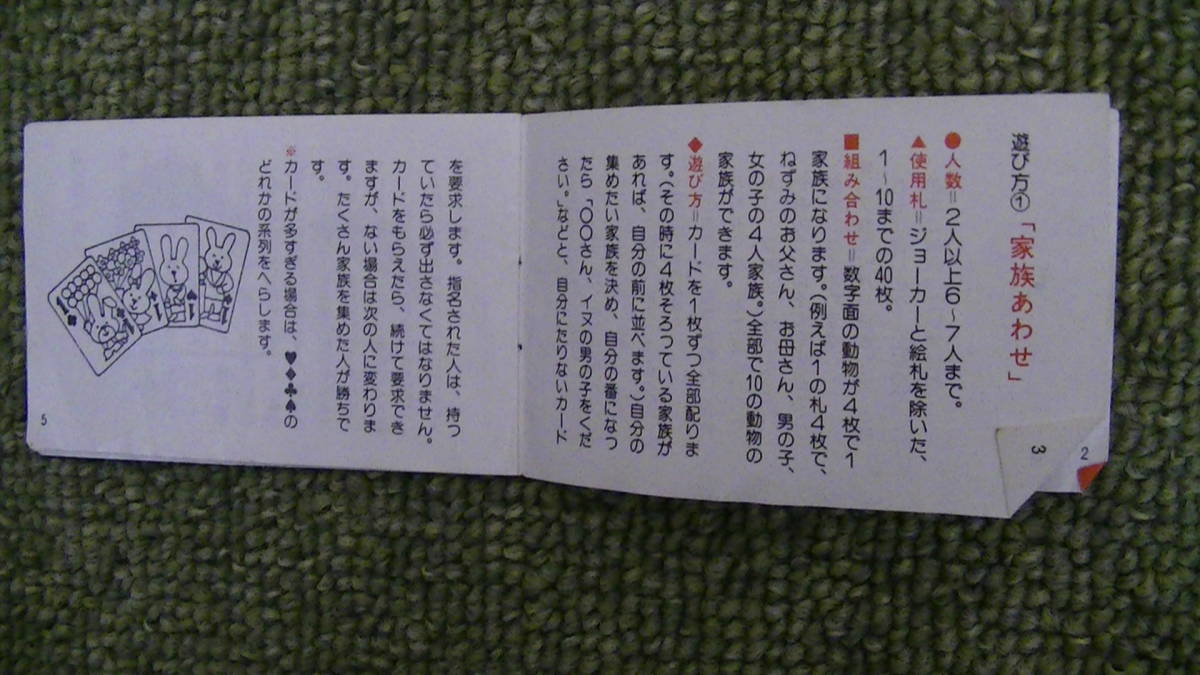 遊び方①「家族あわせ」
●人数＝2人以上6～7人まで。
▲使用札＝ジョーカーと絵札を除いた、
1～10までの40枚。
■組み合わせ＝数字面の動物が4枚で1
家族になります。(例えば1の札4枚で、
ねずみのお父さん、お母さん、男の子、
女の子の4人家族。)全部で10の動物の
家族ができます。
◆遊び方＝カードを1枚ずつ全部配りま
す。(その時に4枚そろっている家族が
あれば、自分の前に並べます。)自分の
集めたい家族を決め、自分の番になっ
たら「〇〇さん、イヌの男の子をくだ
さい。」などと、自分にたりないカード
2
3
を要求します。指名された人は、持っ
ていたら必ず出さなくてはなりません。
カードをもらえたら、続けて要求でき
ますが、ない場合は次の人に変わりま
す。たくさん家族を集めた人が勝ちで
す。
※カードが多すぎる場合は、♥♦♣♠の
どれかの系列をへらします。
5